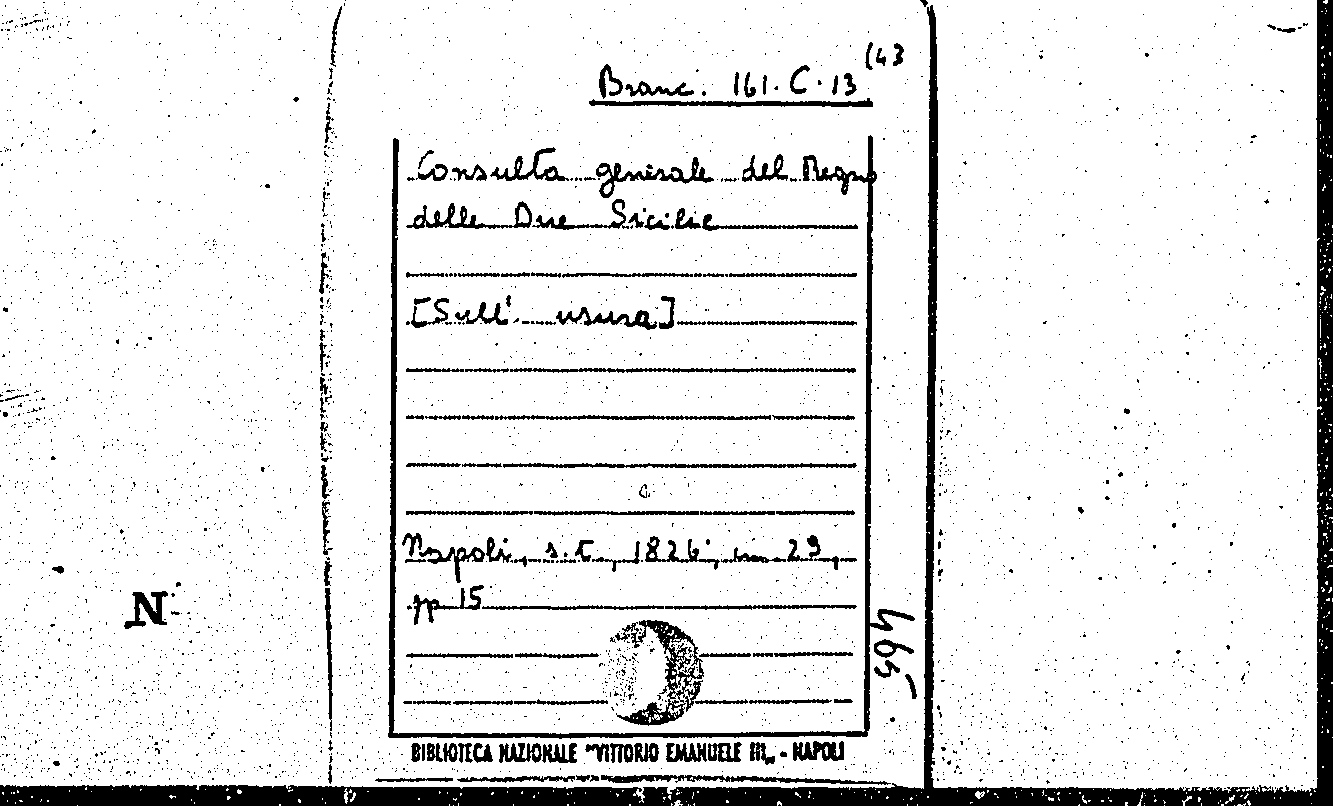 Branc. 161. C. 13 (43
Consulta generale del Regno
delle Due Sicilie
[Sull' usura]
Napoli, s.t., 1826, in 29,
pp 15
465
N
BIBLIOTECA NAZIONALE "VITTORIO EMANUELE III„ - NAPOLI